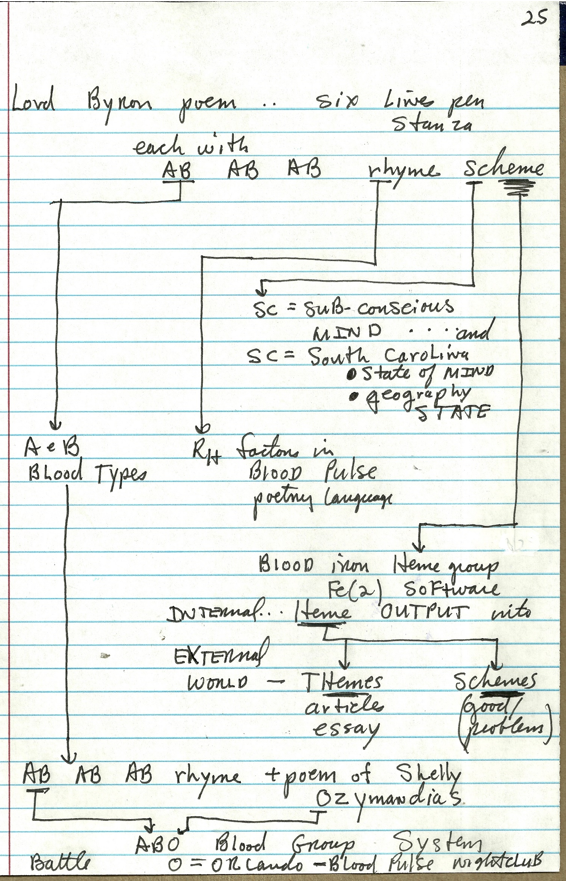 25
Lord Byron poem .. six Lines per
Stanza
each with
AB AB AB rhyme scheme
SC = SUB-conscious
MIND ....and
SC = South Carolina
• State of MIND
• geography
STATE
A & B
Blood Types
RH factors in
Blood Pulse
poetry language
Blood iron Heme group
Fe(2) Software
INTERNAL... Heme OUTPUT into
EXTERNAL
WORLD - THemes
articles
essay
Schemes
(good/
problem)
AB AB AB rhyme + poem of Shelly
Ozymandias
ABO Blood Group System
Battle O = ORLando - Blood Pulse nightclub